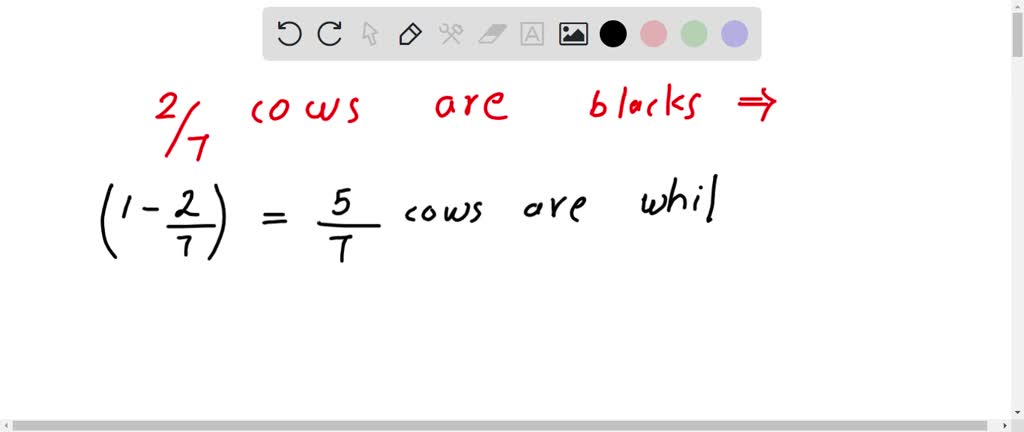 2/7 cows are blacks ⇒
(1 - 2/7) = 5/7 cows are whil